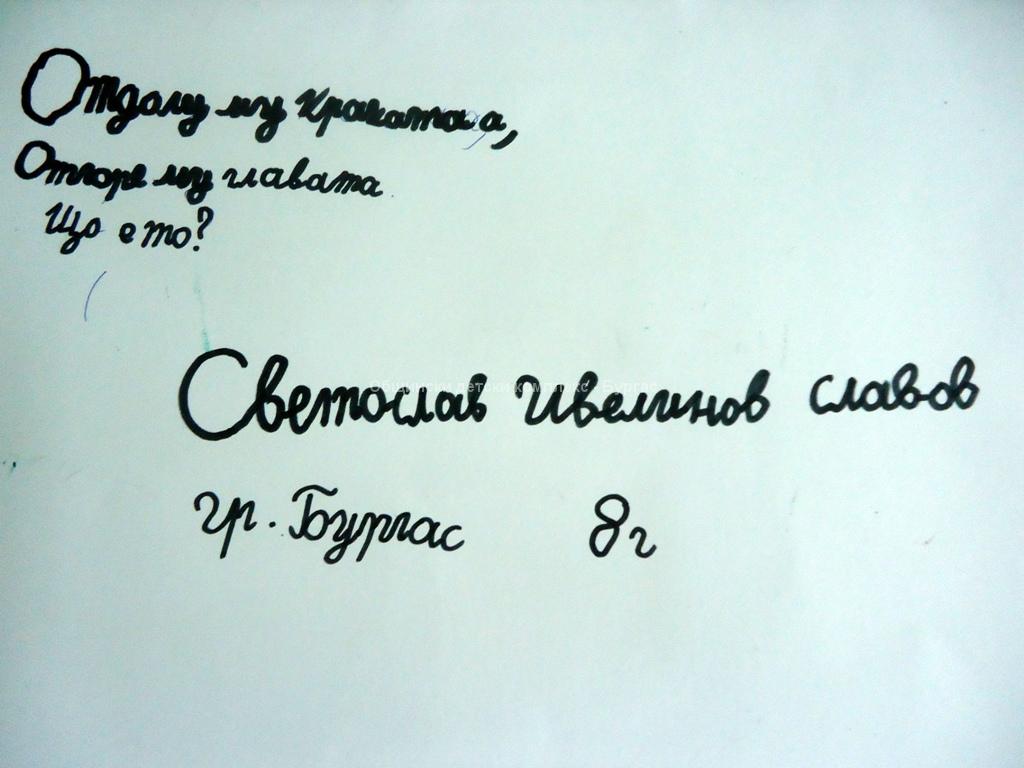 Отдолу му кракатаа,
Отгоре му главата
Що е то?
Общински детски комплекс - Бургас
Светослав Ивелинов славов
гр. Бургас 8г